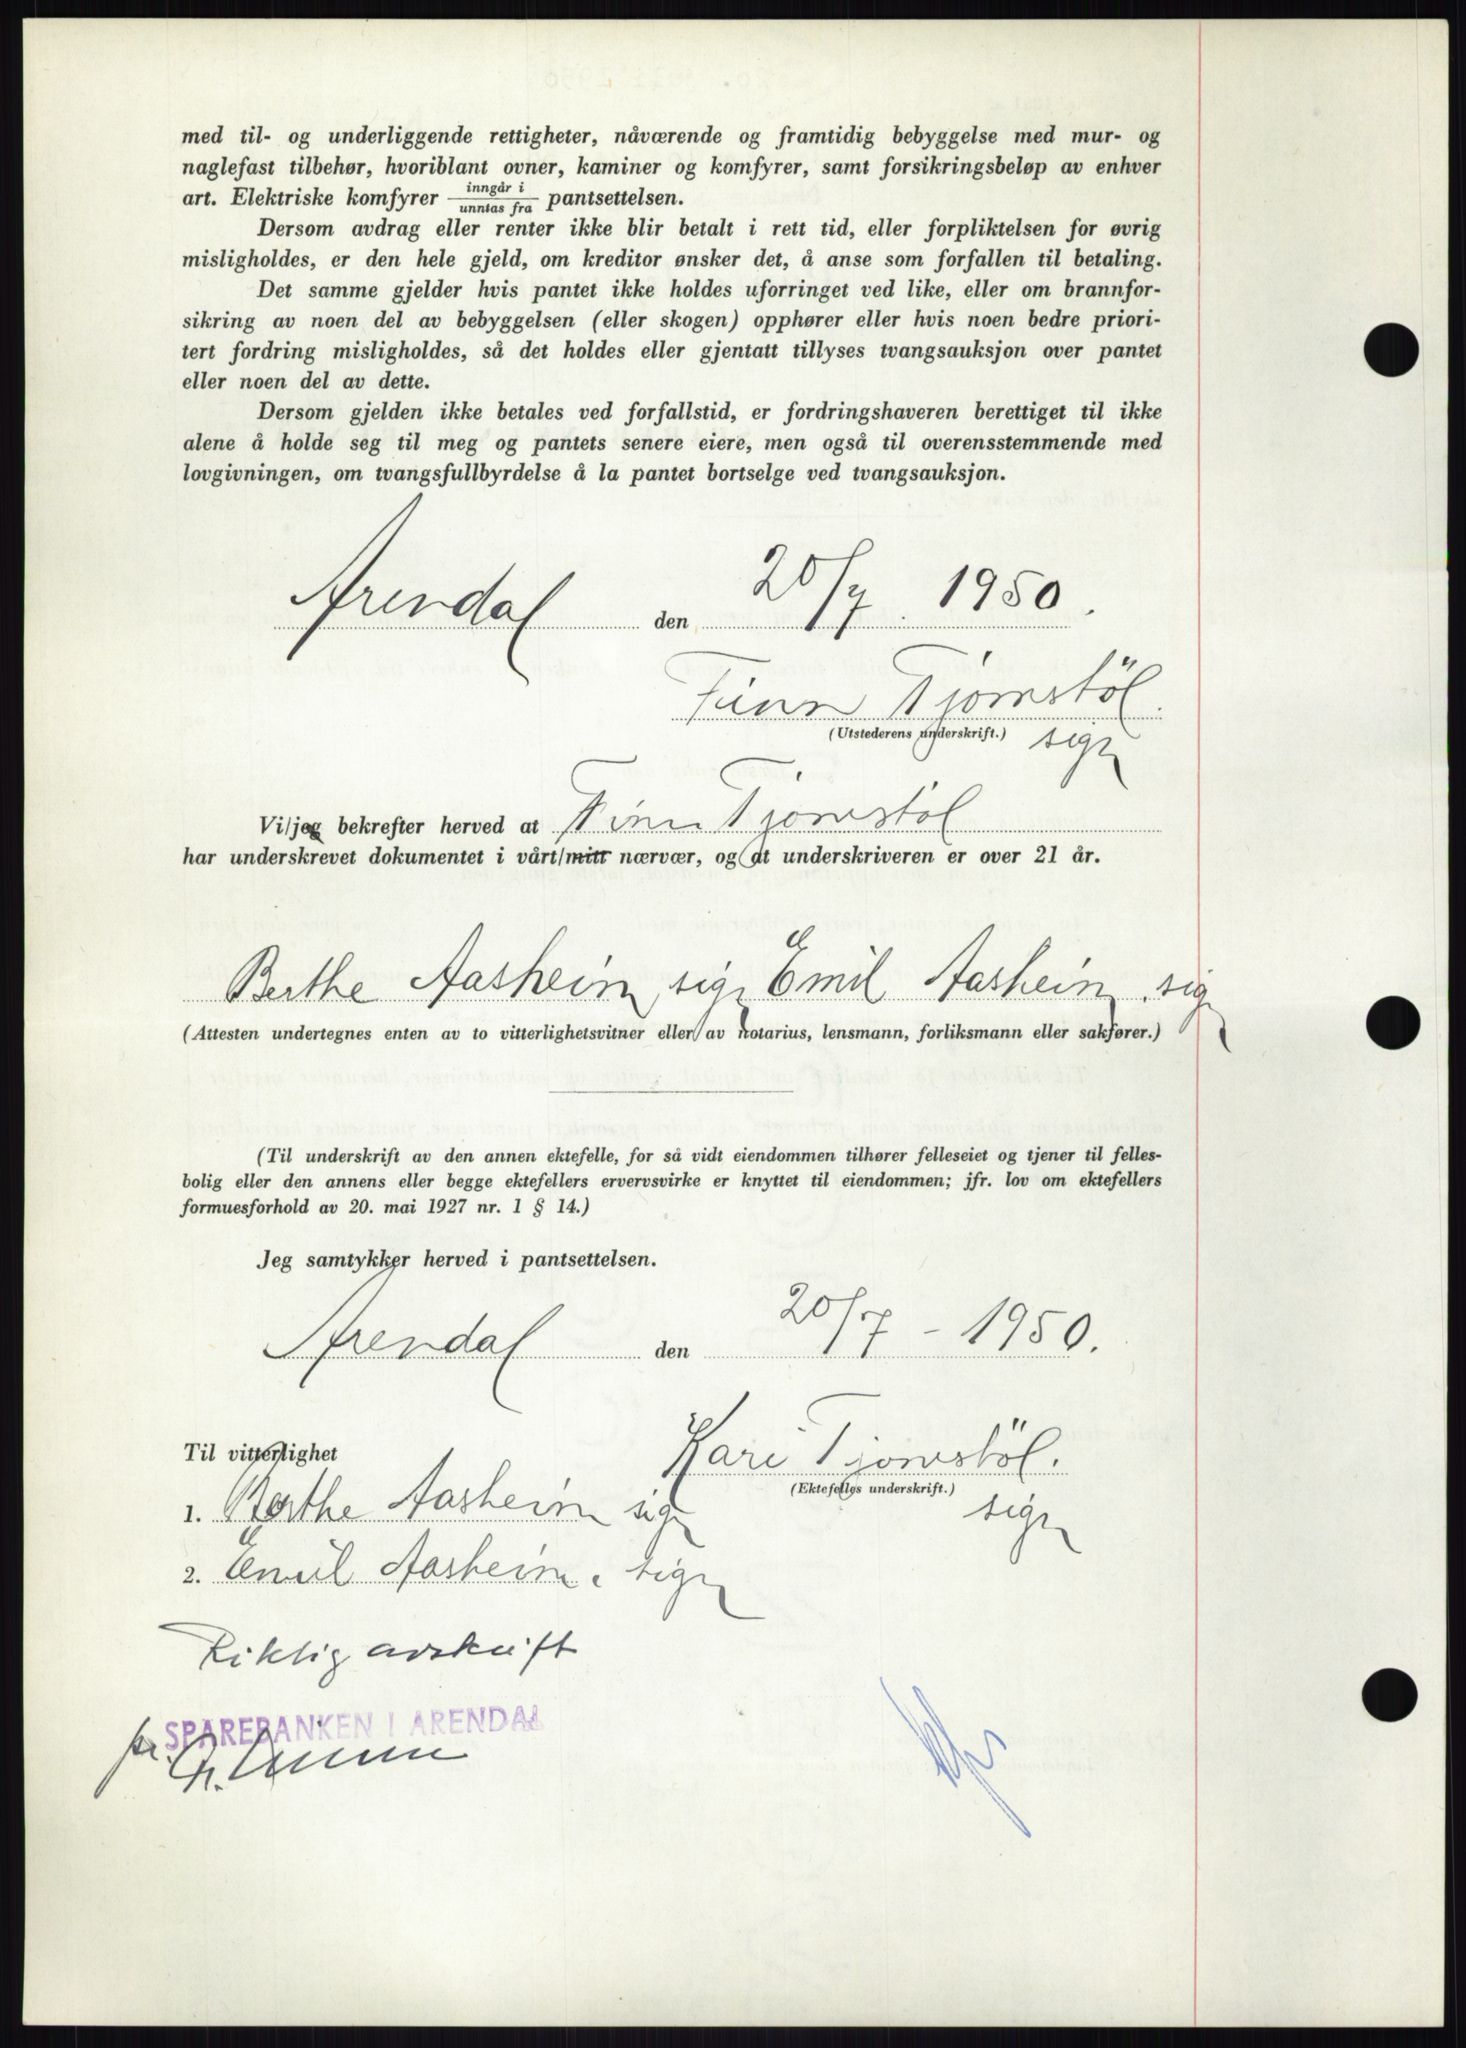 med til- og underliggende rettigheter, nåværende og framtidig bebyggelse med mur- og
naglefast tilbehør, hvoriblant ovner, kaminer og komfyrer, samt forsikringsbeløp av enhver
art. Elektriske komfyrer inngår i / unntas fra pantsettelsen.
Dersom avdrag eller renter ikke blir betalt i rett tid, eller forpliktelsen for øvrig
misligholdes, er den hele gjeld, om kreditor ønsker det, å anse som forfallen til betaling.
Det samme gjelder hvis pantet ikke holdes uforringet ved like, eller om brannfor-
sikring av noen del av bebyggelsen (eller skogen) opphører eller hvis noen bedre priori-
tert fordring misligholdes, så det holdes eller gjentatt tillyses tvangsauksjon over pantet
eller noen del av dette.
Dersom gjelden ikke betales ved forfallstid, er fordringshaveren berettiget til ikke
alene å holde seg til meg og pantets senere eiere, men også til overensstemmende med
lovgivningen, om tvangsfullbyrdelse å la pantet bortselge ved tvangsauksjon.
Arendal den 20/7. 1950.
Finn Tjomstöl.
(Utstederens underskrift.) sign
Vi/jeg bekrefter herved at Finn Tjomstøl
har underskrevet dokumentet i vårt/mitt nærvær, og at underskriveren er over 21 år.
Berthe Aasheim, sign Emil Aasheim, sign
(Attesten undertegnes enten av to vitterlighetsvitner eller av notarius, lensmann, forliksmann eller sakfører.)
(Til underskrift av den annen ektefelle, for så vidt eiendommen tilhører felleseiet og tjener til felles-
bolig eller den annens eller begge ektefellers ervervsvirke er knyttet til eiendommen; jfr. lov om ektefellers
formuesforhold av 20. mai 1927 nr. 1 § 14.)
Jeg samtykker herved i pantsettelsen.
Arendal den 20/7 - 1950.
Kari Tjomstöl.
(Ektefelles underskrift.) sign
Til vitterlighet
1. Berthe Aasheim sign
2. Emil Aasheim. sign
Riktig avskrift
SPAREBANKEN I ARENDAL
pr.